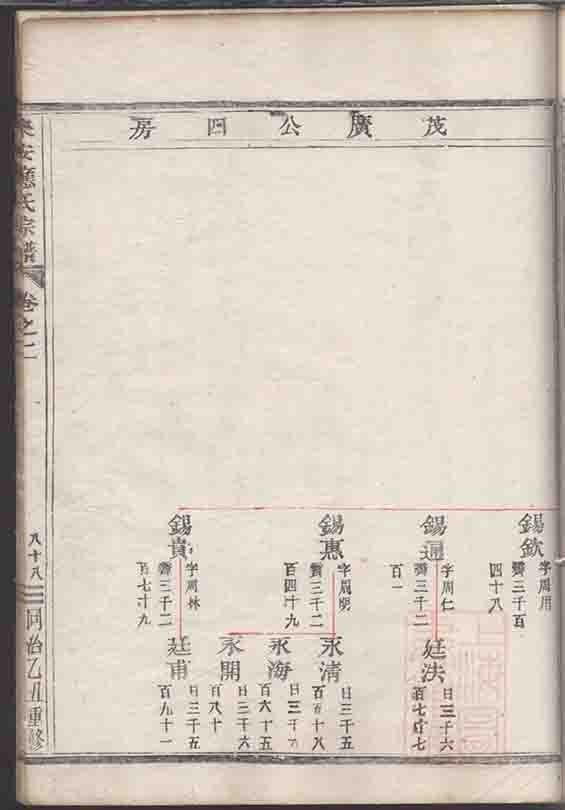 茂廣公四房
錫欽
字周用
齊三千百
四十八
錫通
字周仁
齊三千二
百一
廷法
日三千六
百七十七
錫惠
字周明
齊三千二
百四十九
永清
日三千五
百五十八
永海
日三千
百六十五
永開
日三千六
百八十
錫貴
字周林
齊三千二
百七十九
廷甫
日三千五
百九十一
安應氏宗譜
卷之二
八十八
同治乙丑重修